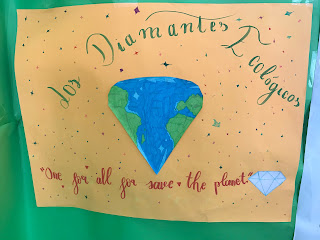 Los Diamantes Ecológicos
"One for all for save the planet"